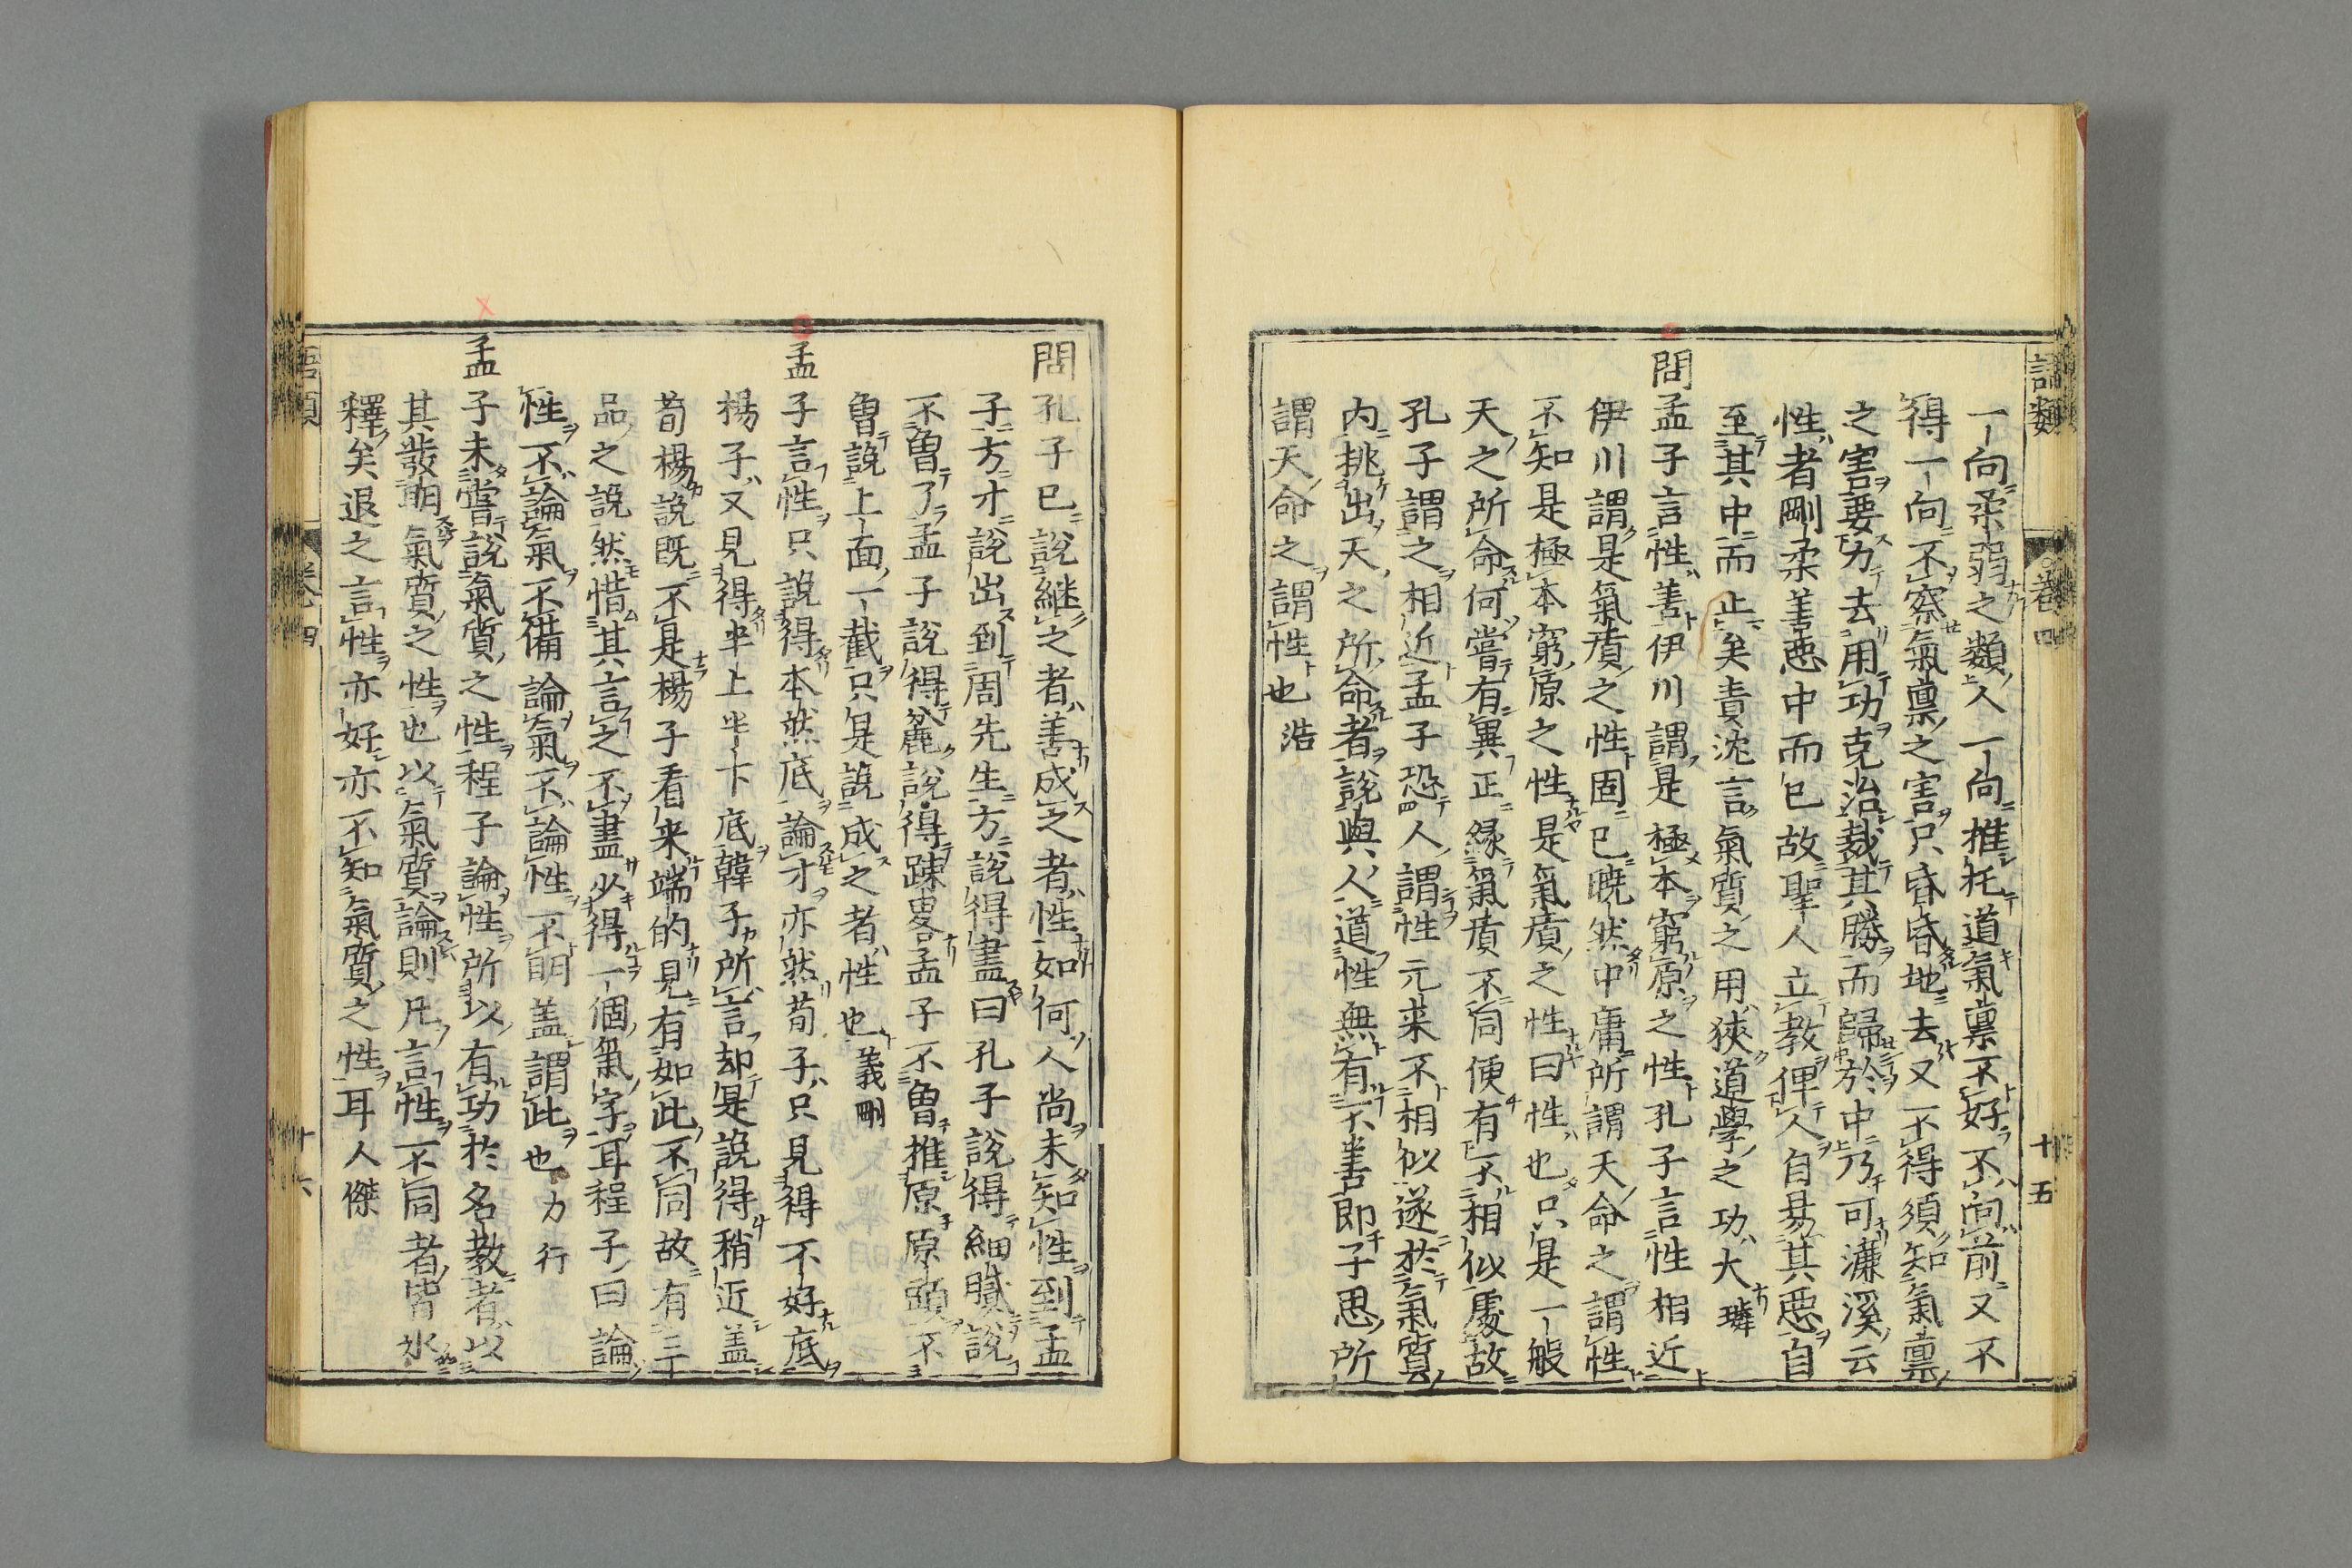 語類 卷四 十五
一向柔弱之類人一向推托道氣稟不好不向前又不
得一向不察氣稟之害只昏昏地去又不得須知氣稟
之害要力去用功克治裁其勝而歸於中乃可濂溪云
性者剛柔善惡中而已故聖人立教俾人自易其惡自
至其中而止矣責沈言氣質之用狹道學之功大 璘
問孟子言性善伊川謂是極本窮原之性孔子言性相近
伊川謂是氣質之性固已曉然中庸所謂天命之謂性
不知是極本窮原之性是氣質之性曰性也只是一般
天之所命何嘗有異正緣氣質不同便有不相似處故
孔子謂之相近孟子恐人謂性元來不相似遂於氣質
內挑出天之所命者說與人道性無有不善即子思所
謂天命之謂性也 浩
問孔子已說繼之者善成之者性如何人尚未知性到孟
子方才說出到周先生方說得盡曰孔子說得細膩說
不曾了孟子說得麄說得踈畧孟子不曾推原原頭不
曾說上面一截只是說成之者性也 義剛
孟子言性只說得本然底論才亦然荀子只見得不好底
楊子又見得半上半下底韓子所言却是說得稍近盖
荀楊說既不是楊子看來端的見有如此不同故有三
品之說然惜其言之不盡少得一個氣字耳程子曰論
性不論氣不備論氣不論性不明盖謂此也 力行
孟子未嘗說氣質之性程子論性所以有功於名教者以
其發明氣質之性也以氣質論則凡言性不同者皆氷
釋矣退之言性亦好亦不知氣質之性耳 人傑
語類 卷四 十六